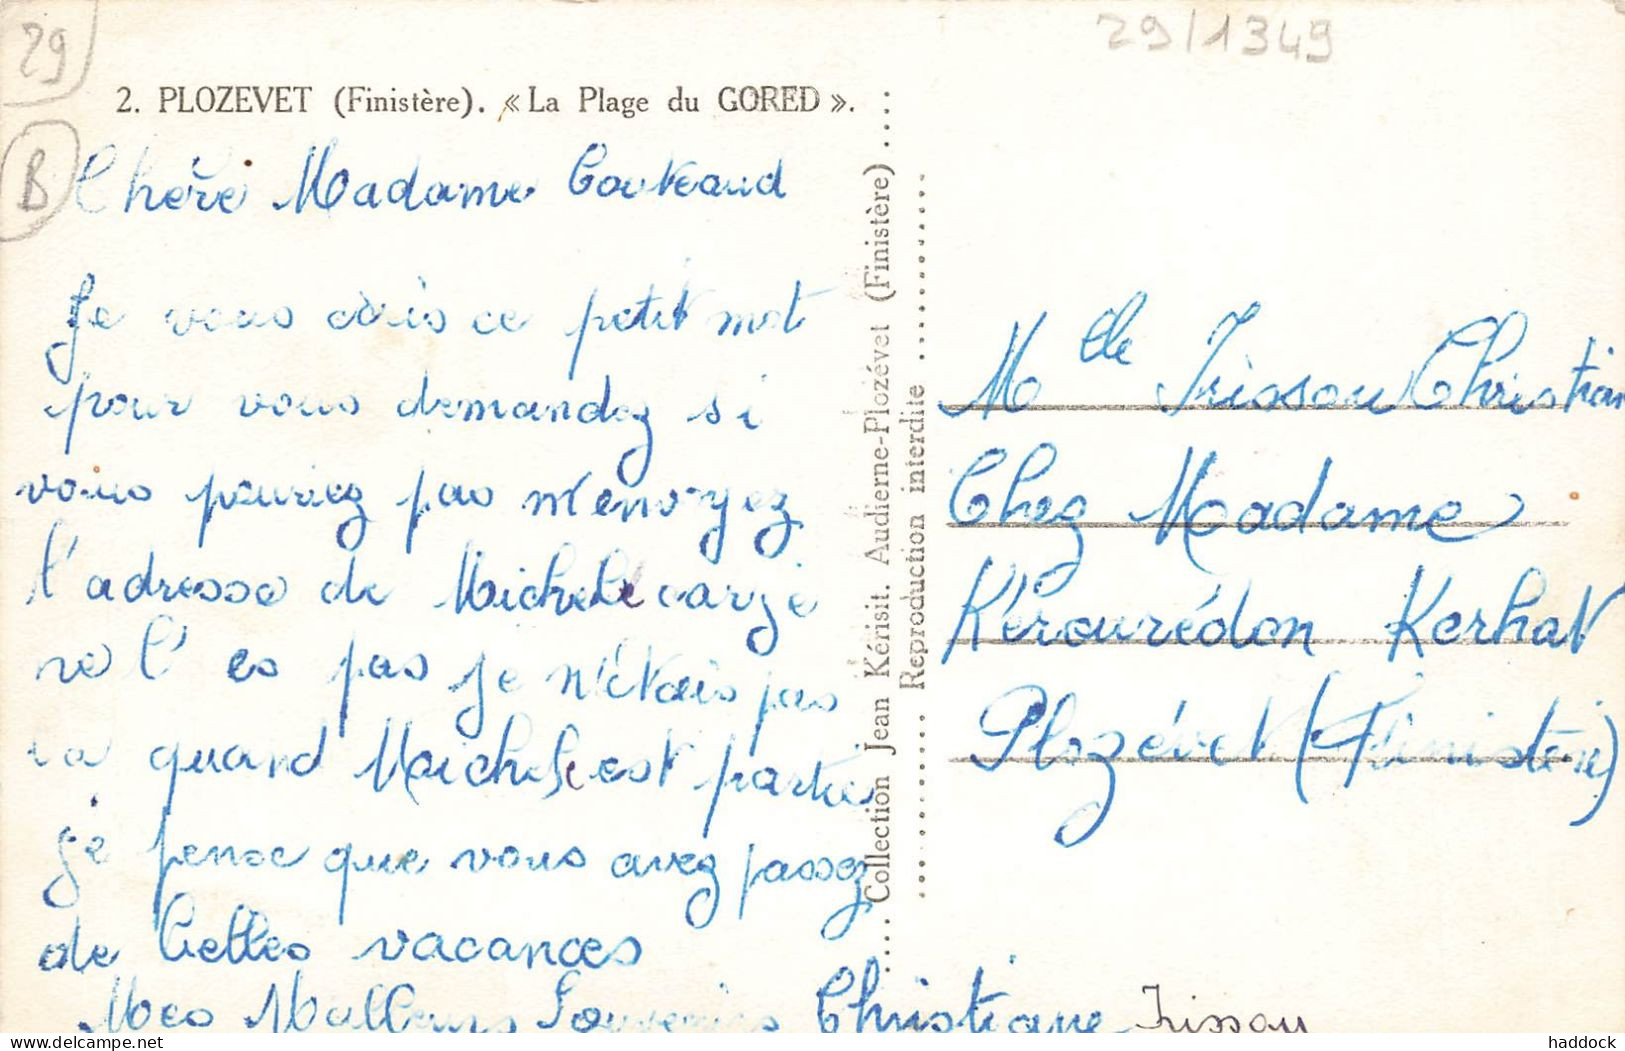 29
29/1349
2. PLOZEVET (Finistère). « La Plage du GORED ».
B
Chère Madame Couteaud
Je vous écris ce petit mot
pour vous demandez si
vous pouriez pas m'envoyez
l'adresse de Michele car je
ne l'es pas je n'étais pas
la quand Michele est partie
je pense que vous avez passez
de belles vacances
Mes Meilleurs Souvenirs Christiane Trissou
..... Collection Jean Kérisit. Audierne-Plozévet (Finistère) ....
Reproduction interdite
Mlle Trissou Christian
Chez Madame
Kérourédon Kerhat
Plozévet (Finistère)
haddock